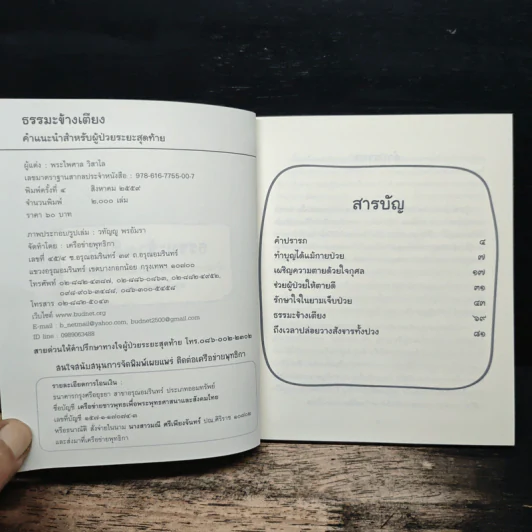 ธรรมะข้างเตียง
คำแนะนำสำหรับผู้ป่วยระยะสุดท้าย
ผู้แต่ง : พระไพศาล วิสาโล
เลขมาตรฐานสากลประจำหนังสือ : 978-616-7755-00-7
พิมพ์ครั้งที่ ๔ สิงหาคม ๒๕๕๙
จำนวนพิมพ์ ๒,๐๐๐ เล่ม
ราคา ๖๐ บาท
ภาพประกอบ/รูปเล่ม : วทัญญู พรอัมรา
จัดทำโดย : เครือข่ายพุทธิกา
เลขที่ ๔๕/๔ ซ.อรุณอมรินทร์ ๓๙ ถ.อรุณอมรินทร์
แขวงอรุณอมรินทร์ เขตบางกอกน้อย กรุงเทพฯ ๑๐๗๐๐
โทรศัพท์ ๐๒-๘๘๒-๔๓๘๗, ๐๒-๘๘๖-๐๘๖๓, ๐๒-๘๘๒-๔๙๕๒,
โทรสาร ๐๒-๘๘๒-๕๐๔๓
เว็บไซต์ www.budnet.org
E-mail : b_netmail@yahoo.com, budnet2500@gmail.com
ID line : 0869063468
สายด่วนให้คำปรึกษาทางใจผู้ป่วยระยะสุดท้าย โทร.๐๘๖-๐๐๒-๒๓๐๒
สนใจสนับสนุนการจัดพิมพ์เผยแพร่ ติดต่อเครือข่ายพุทธิกา
รายละเอียดการโอนเงิน :
ธนาคารกรุงศรีอยุธยา สาขาอรุณอมรินทร์ ประเภทออมทรัพย์
ชื่อบัญชี เครือข่ายชาวพุทธเพื่อพระพุทธศาสนาและสังคมไทย
เลขที่บัญชี
หรือธนาณัติ สั่งจ่ายในนาม นางสาวมณี ศรีเพียงจันทร์ ปณ.ศิริราช
และส่งมาที่เครือข่ายพุทธิกา
สารบัญ
คำปรารภ ๔
ทำบุญได้แม้กายป่วย ๗
เผชิญความตายด้วยใจกุศล ๑๗
ช่วยผู้ป่วยให้ตายดี ๓๑
รักษาใจในยามเจ็บป่วย ๔๓
ธรรมะข้างเตียง ๖๙
ถึงเวลาปล่อยวางสังขารทั้งปวง ๘๑